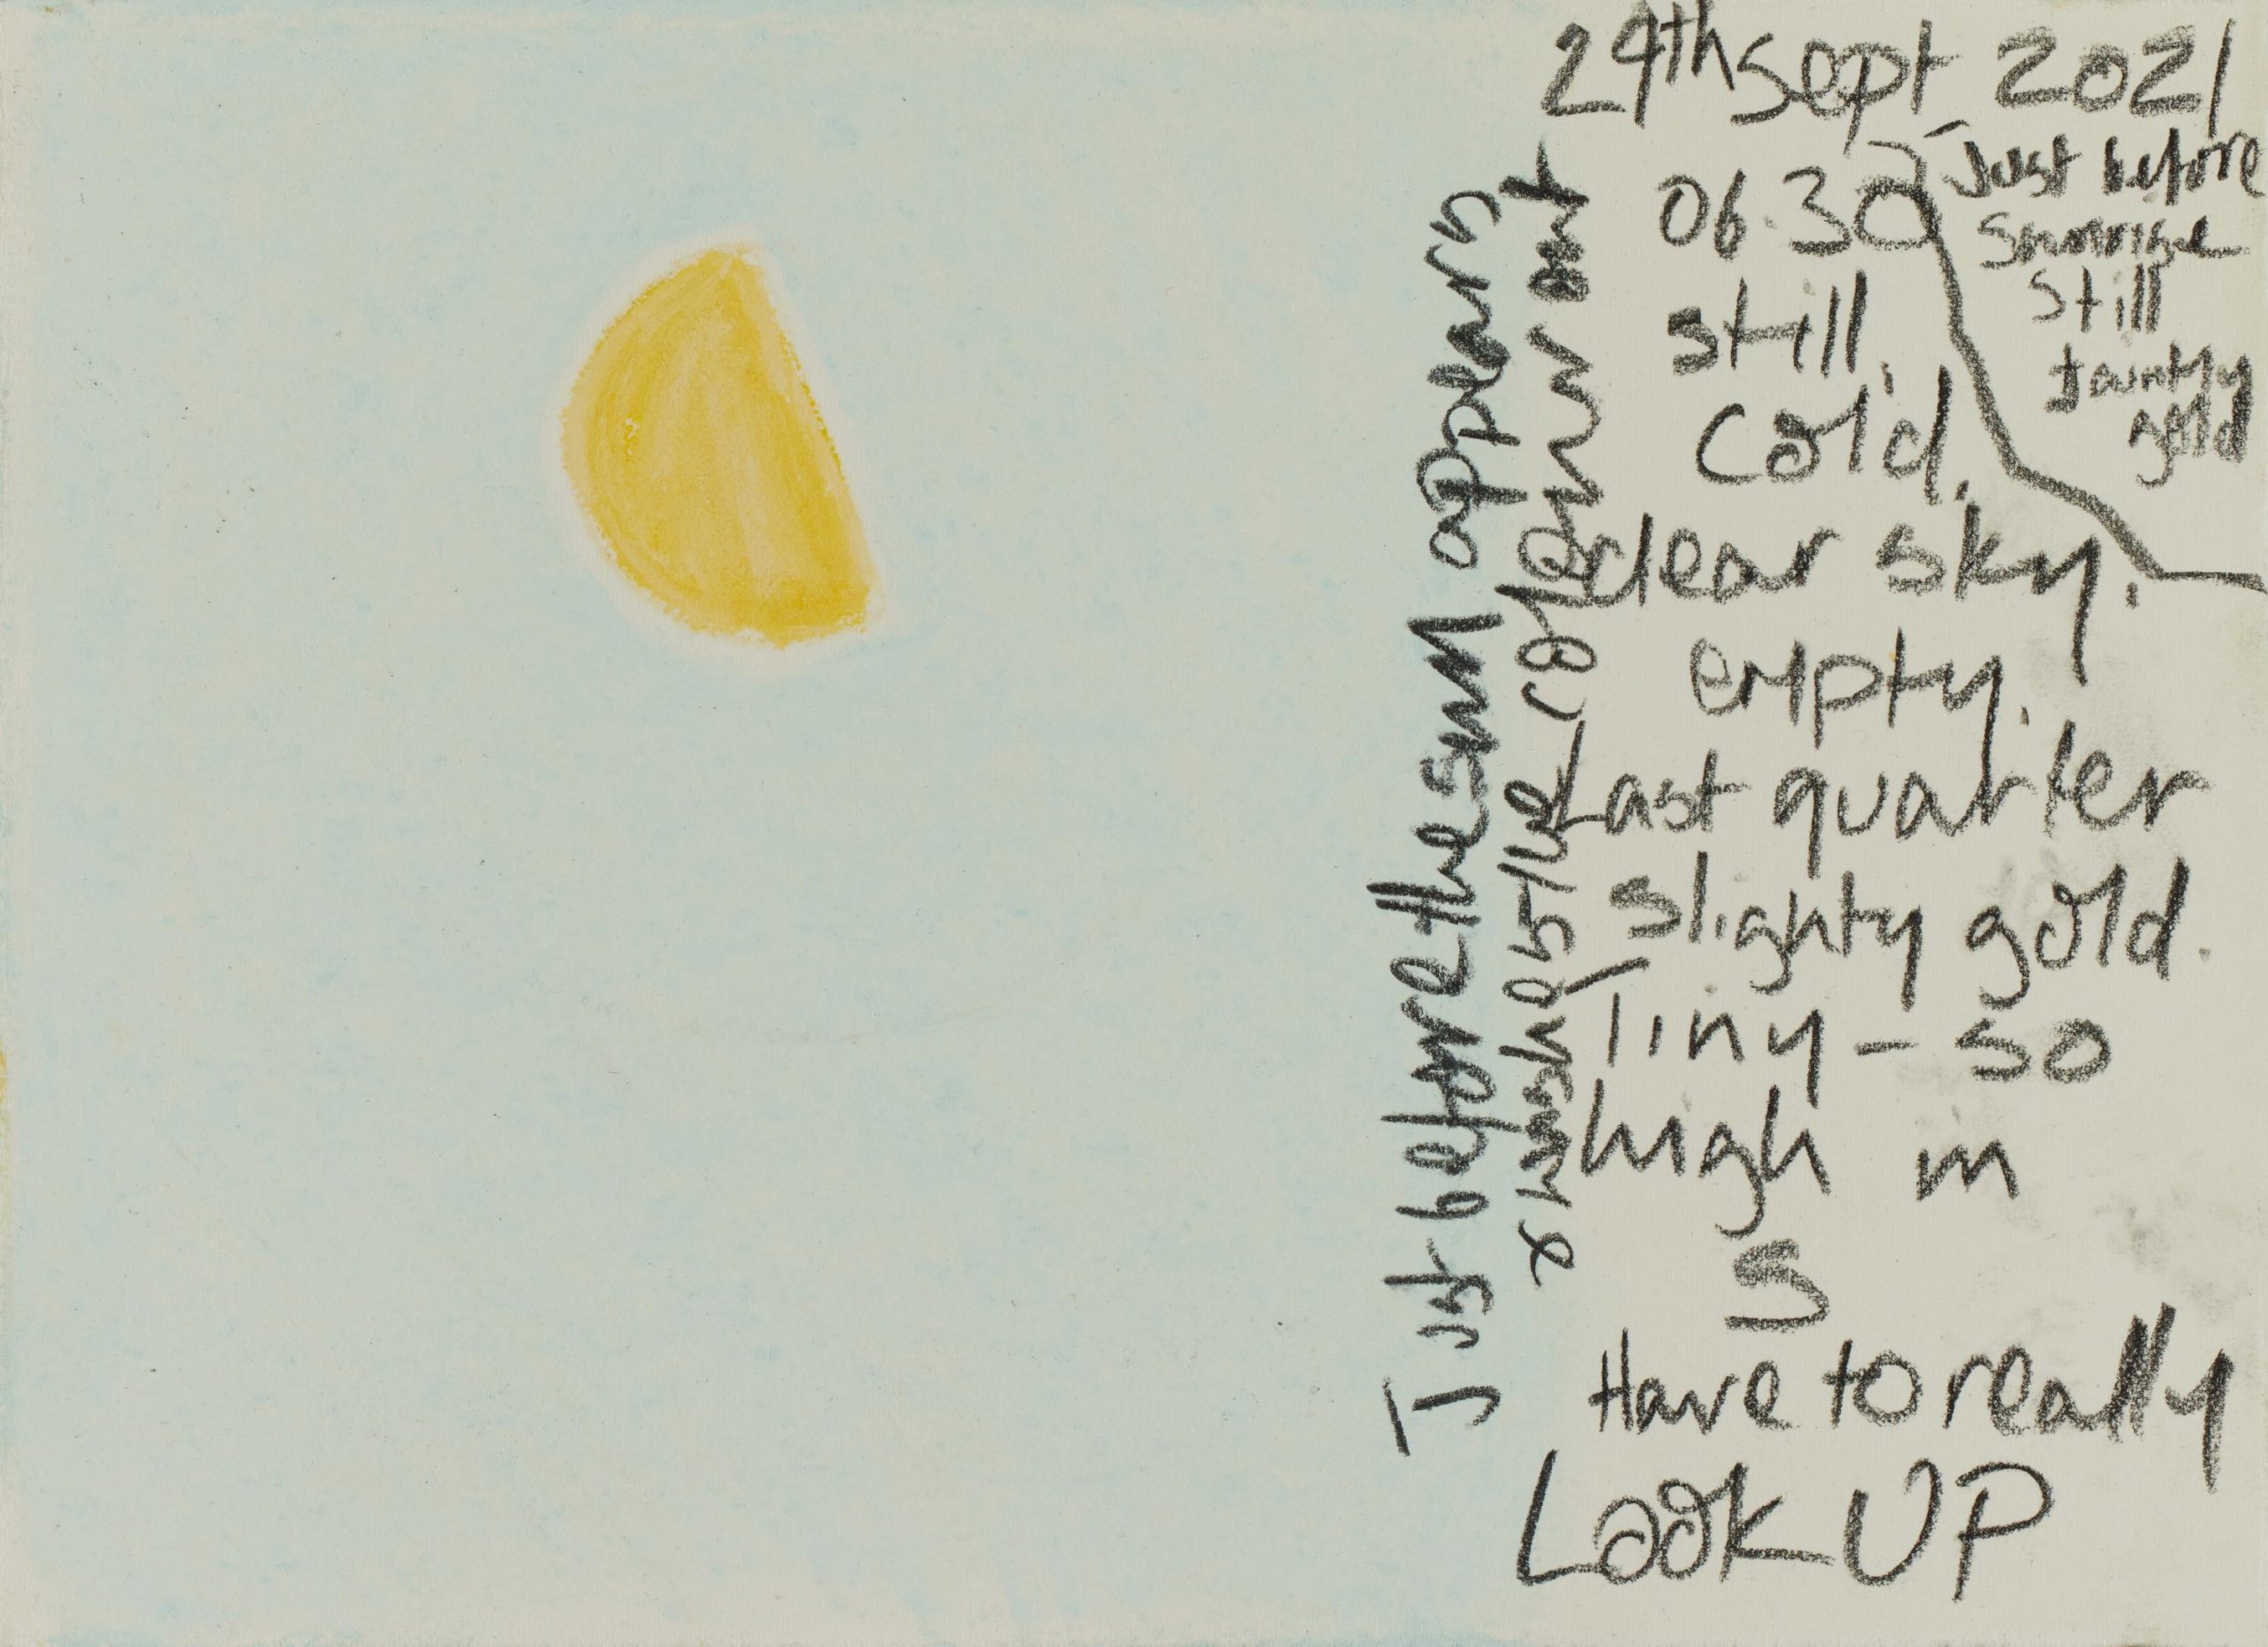 29th Sept 2021
06.30
still.
cold.
clear sky.
empty.
Last quarter
slighty gold.
Tiny – so
high in
S
Have to really
LOOK UP
Just before
sunrise
still
faintly
gold
Just before the sun appears
& washes the colour out